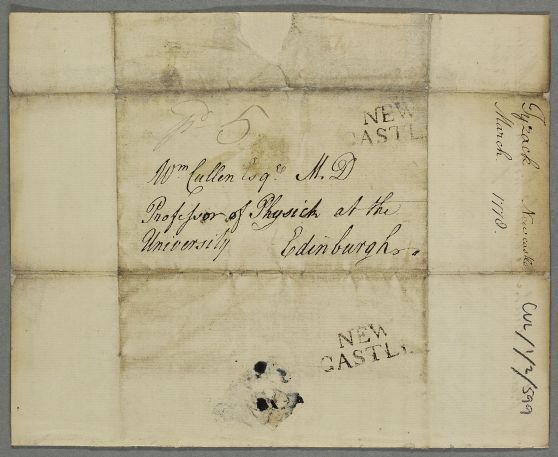 Pd 5
NEW
CASTLE
Wm Cullen Esqr. M.D
Professor of Physick at the
University Edinburgh.
NEW
CASTLE
Tyzack Newcastle
March 1778.
CUL/1/2/599